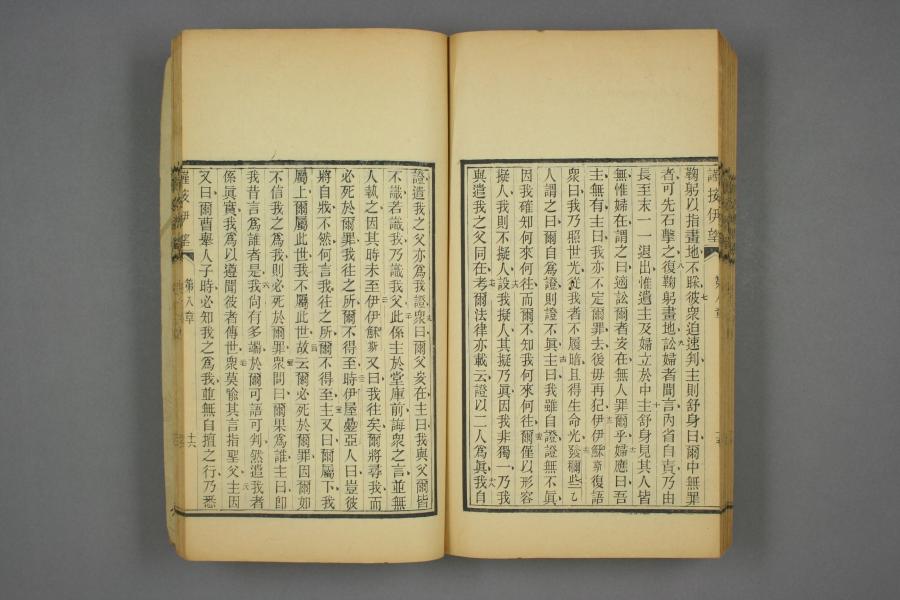 鞠躬以指畫地不睬彼衆迫速判主則舒身曰爾中無罪
者可先石擊之復鞠躬畫地訟婦者聞言內省自責乃由
長至末一一退出惟遺主及婦立於中主舒身見其人皆
無惟婦在謂之曰適訟爾者妄在無人罪爾乎婦應曰吾
主無有主曰我亦不定爾罪去後毋再犯伊伊穌復語
衆曰我乃照世光從我者不履暗且得生命光發穪些乙
人謂之曰爾自為證則證不真主曰我雖自證證無不真
因我確知何來何往而爾不知我何來何往爾僅以形容
擬人我則不擬人設我擬人其擬乃真因我非獨一乃我
與遣我之父同在考爾法律亦載云證以二人為真我自
證遣我之父亦為我證衆曰爾父妄在主曰我與父爾皆
不識若識我乃識我父此係主於堂庫前誨衆之言並無
人執之因其時未至伊伊穌又曰我往矣爾將尋我而
必死於爾罪我往之所爾不得至時伊屋疊亞人曰豈彼
將自戕不然何言我往之所爾不得至主又曰爾屬下我
屬上爾屬此世我不屬此世故云爾必死於爾罪因爾如
不信我之為我則必死於爾罪衆問曰爾果為誰主曰卽
我昔言為誰者是我尙有多端於爾可語可判然遣我者
係眞實我為以遵聞彼者傳世衆莫喻其言指聖父主因
又曰爾曹舉人子時必知我之為我並無自擅之行乃悉
伊望
第八章
十六